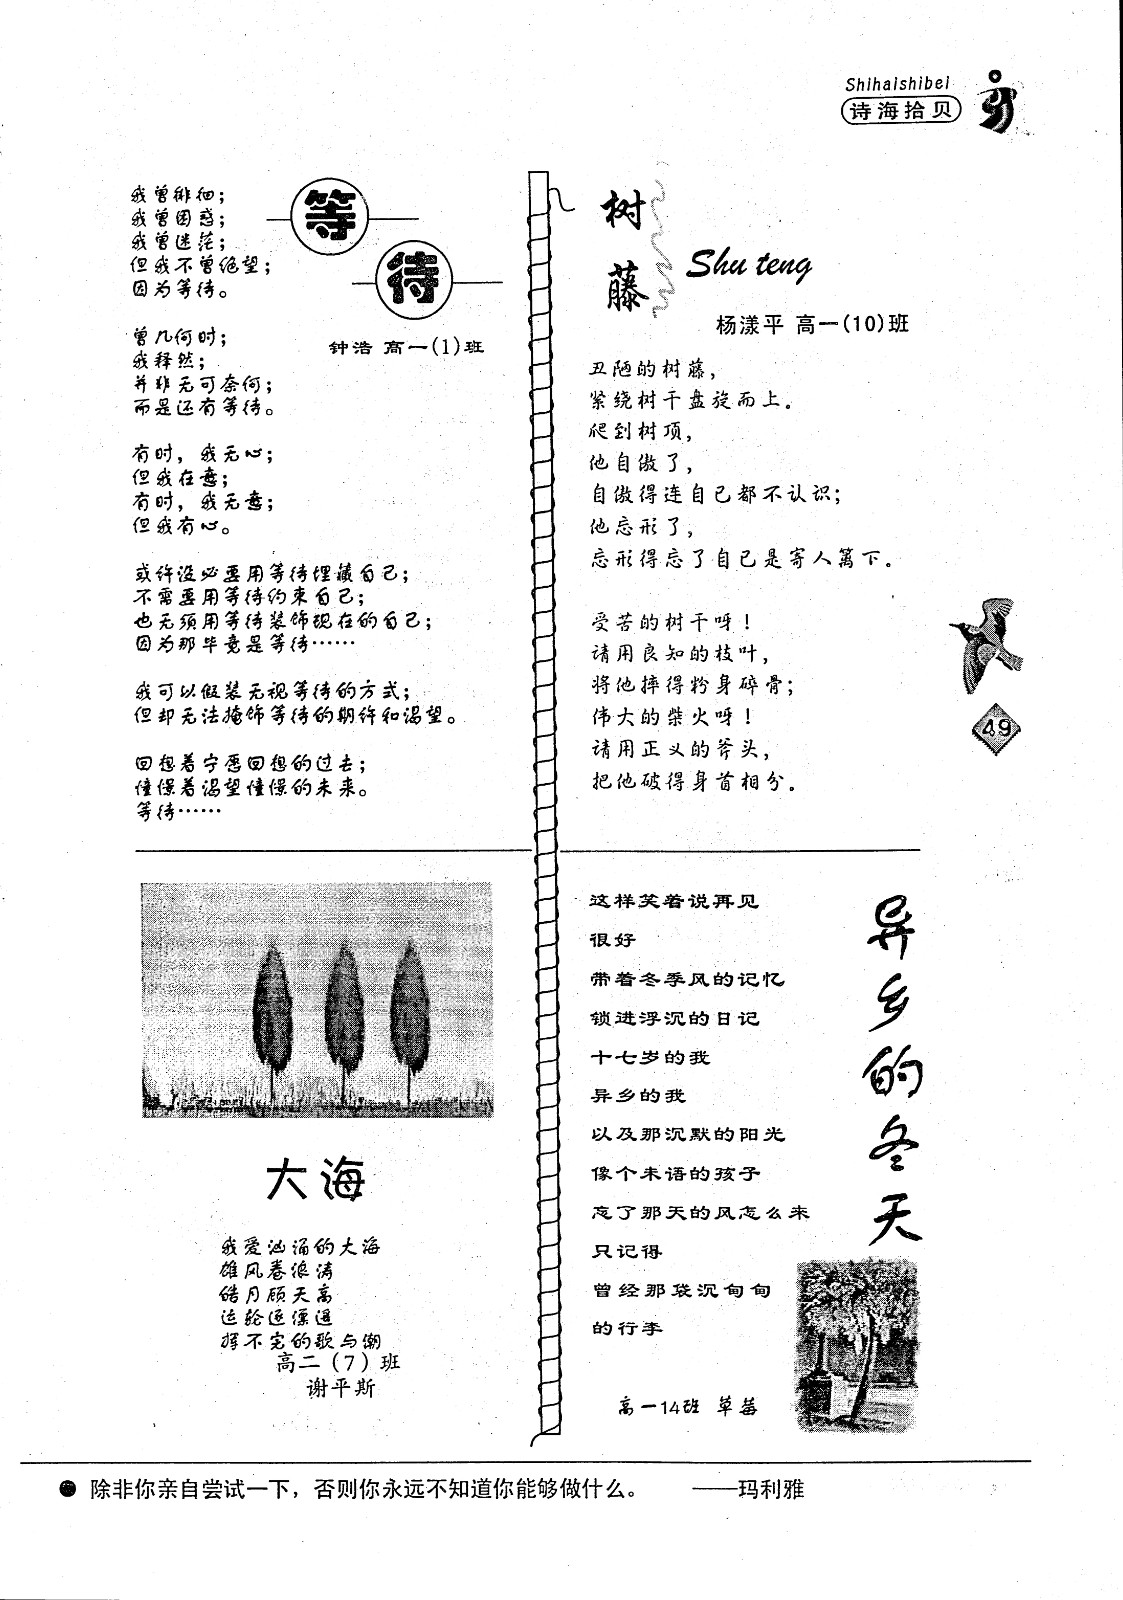 Shihaishibei
诗海拾贝
等待
钟浩 高一(1)班
我曾徘徊；
我曾困惑；
我曾迷茫；
但我不曾绝望；
因为等待。
曾几何时；
我释然；
并非无可奈何；
而是还有等待。
有时，我无心；
但我在意；
有时，我无意；
但我有心。
或许没必要用等待埋藏自己；
不需要用等待约束自己；
也无须用等待装饰现在的自己；
因为那毕竟是等待……
我可以假装无视等待的方式；
但却无法掩饰等待的期许和渴望。
回想着宁愿回想的过去；
憧憬着渴望憧憬的未来。
等待……
树藤
Shu teng
杨漾平 高一(10)班
丑陋的树藤，
紧绕树干盘旋而上．
爬到树顶，
他自傲了，
自傲得连自己都不认识；
他忘形了，
忘形得忘了自己是寄人篱下．
受苦的树干呀！
请用良知的枝叶，
将他摔得粉身碎骨；
伟大的柴火呀！
请用正义的斧头，
把他破得身首相分．
49
大海
我爱汹涌的大海
雄风卷浪涛
皓月顾天高
运轮逐漂遥
挥不完的歌与潮
高二（7）班
谢平斯
异乡的冬天
这样笑着说再见
很好
带着冬季风的记忆
锁进浮沉的日记
十七岁的我
异乡的我
以及那沉默的阳光
像个未语的孩子
忘了那天的风怎么来
只记得
曾经那袋沉甸甸
的行李
高一14班 草莓
● 除非你亲自尝试一下，否则你永远不知道你能够做什么。 ——玛利雅